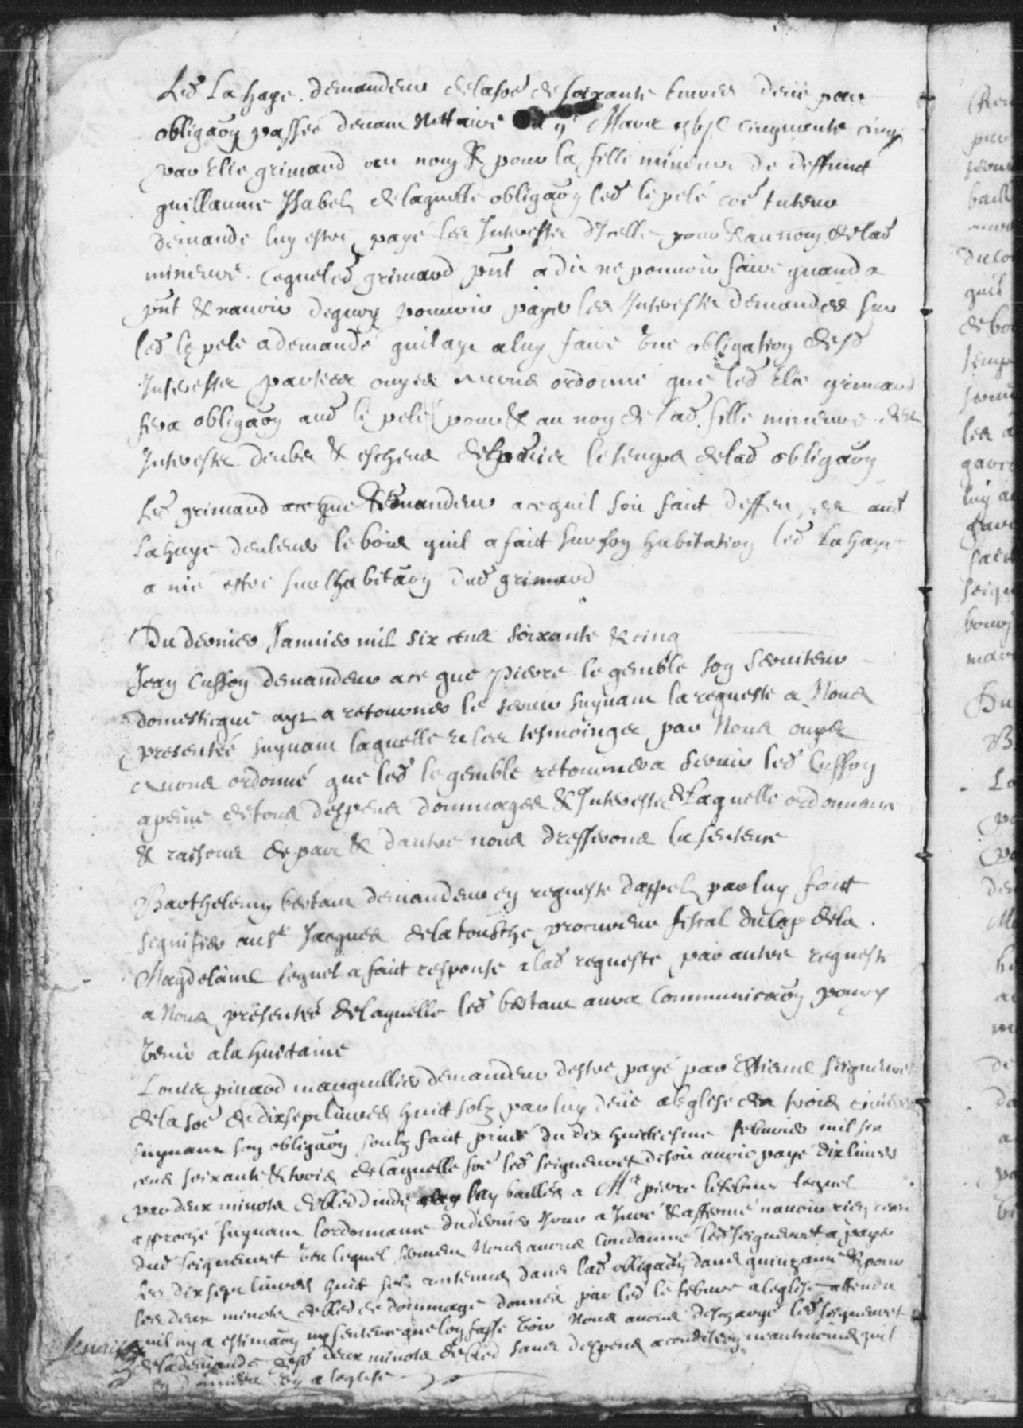 Led. La haye. demandeur de la soe de soixante livres deue par
obligaon passée devant Nottaire Mars cinquante cinq
par Elie grimaud au nom & pour la fille mineure de deffunct
guillaume Isabel de laquelle obligaon led le pelé coe tuteur
demande luy estre payé les Interestz d'Icelle pour & au nom de lad
mineure. lequel led grimaud pnt a dit ne pouvoir faire quand a
pnt & n'avoir dequoy pouvoir payer les Interestz demandés sur
led le pelé a demandé quil aye a luy faire une obligation desd
Interestz parties ouyes avons ordonné que led Elie grimaud
fera obligaon aud le pelé pour & au nom de lad. fille mineure des
Interestz deubz & escheus depuis le temps de lad obligaon
Led grimaud demandeur a ce quil soit faict deffences aud
La haye denlever le bois quil a faict sur son habitation led La haye
a nié estre sur lhabitaon dud grimaud
Du dernier Janvier mil six cens soixante & cinq
Jean Cusson demandeur a ce que pierre le gemble son serviteur
domesticque aye a retourner le servir suyvant la requeste a Nous
presentée suyvant laquelle & les tesmoinges par Nous ouyes
avons ordonné que led le gemble retournera servir led Cusson
a peine de tous despens dommages & Interestz de laquelle ordonnance
& raisons de part & dautre nous dresserons la sentence
Barthelemy bertaut demandeur en requeste dappel par luy faict
signifier au sr Jacques de la tousche procureur fiscal du Cap de la
Magdelaine lequel a faict response a lad requeste par autre requeste
a Nous presentée de laquelle led bertaut aura Communicaon pour y
venir a la huictaine
Louis pinard marguillier demandeur destre payé par Estienne seigneuret
de la soe de dixsept livres huict solz par luy deue a leglise des trois rivieres
suyvant son obligaon soubz saint privé du dix huictiesme febvrier mil six
cens soixante & trois de laquelle soe led seigneuret disoit avoir payé dix livres
par deux minotz de bled dinde baillés a Mre pierre lefebvre lequel
approché suyvant lordonnance du dernier Jour a Juré & affermé navoir rien receu
dud seigneuret veu lequel serment Nous avons Condamné led seigneuret a payer
les dixsept livres huict solz contenus dans lad obligaon dans quinzaine & pour
les deux minotz de bled de dommage donnés par led le febvre a leglise attendu
quil ny a estimaon ny sentence que lon fasse voir Nous avons deschargé led seigneuret
de la demande desd deux minotz de bled sans despens a condition neantmoins quil
a leglise